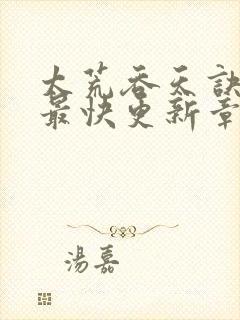 大荒吞天訣
最快更新章
湯嘉